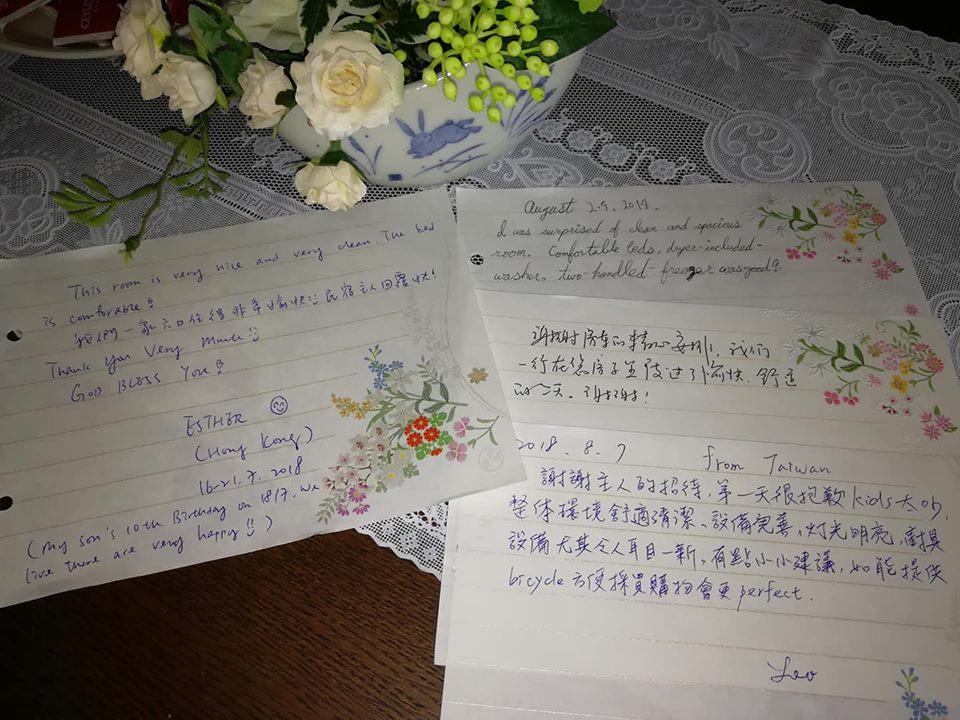 This room is very nice and very clean. The bed
is comforable!
我們一家六口住得非常愉快!! 民宿主人回覆快!
Thank you Very Much!!
GOD BLESS YOU!
ESTHER
(Hong Kong)
16-21.7.2018
(My son's 10th Birthday on 18/7. We
live there are very happy!!)
August 2-9, 2018.
I was surprised of clean and spacious
room. Comfortable beds, dryer-included-
washer, two-handled-freezer was good!
谢谢房东的精心安排，我们
一行在您房子里度过了愉快、舒适
的一天。谢谢！
2018.8.7 from Taiwan
謝謝主人的招待，第一天很抱歉 kids 太吵.
整体環境舒適清潔、設備完善，灯光明亮，廚具
設備尤其令人耳目一新，有點小小建議，如能提供
bicycle 方便採買購物會更 perfect.
Leo